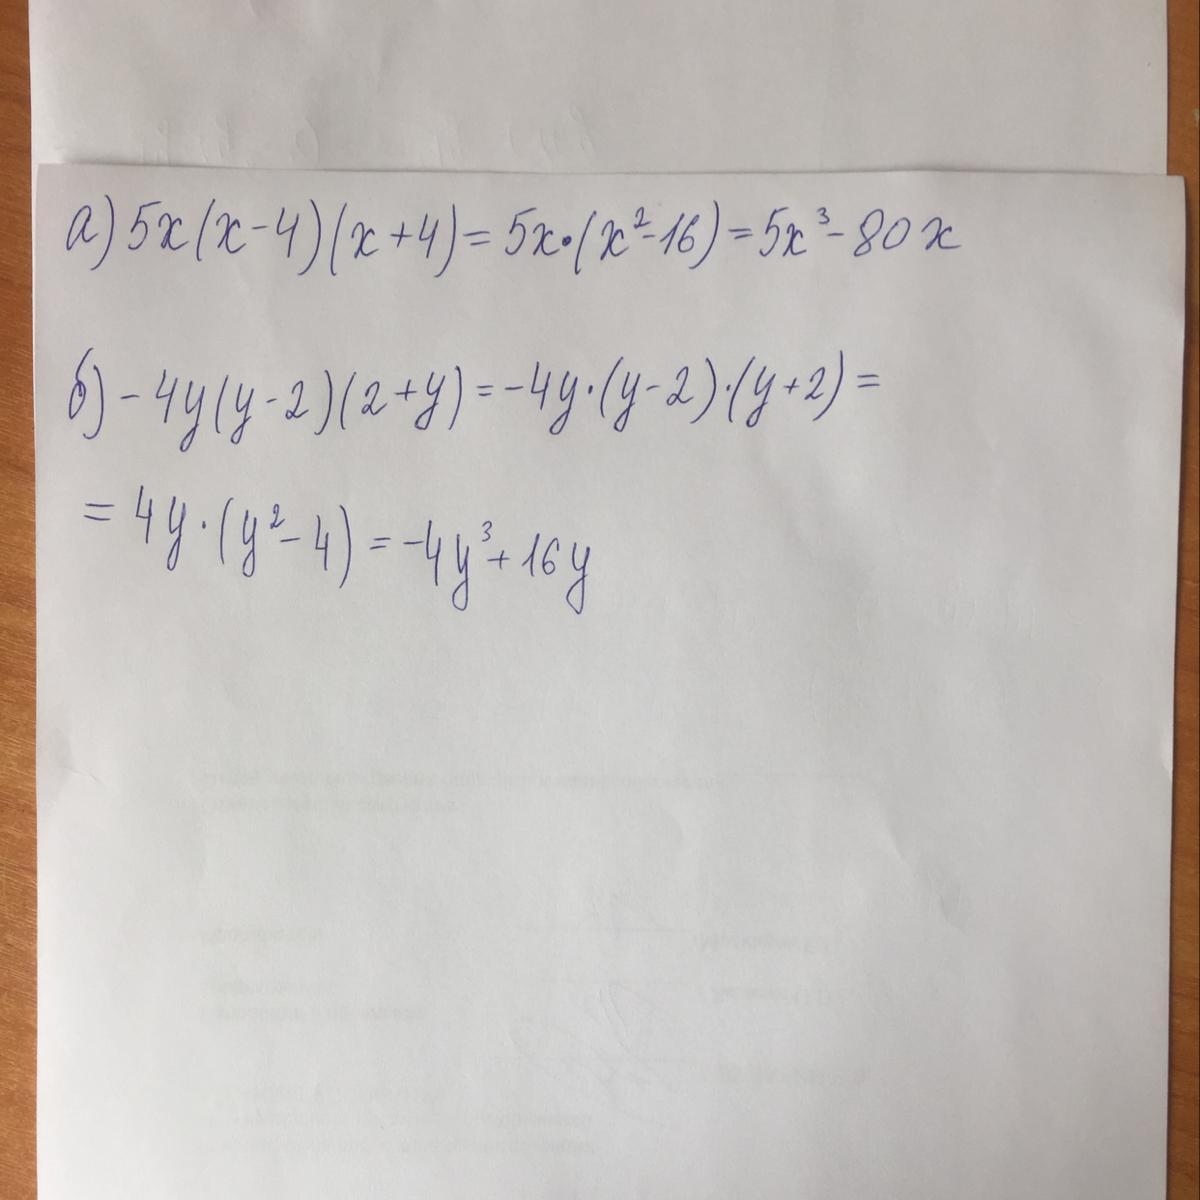 а) 5x(x-4)(x+4)=5x·(x²-16)=5x³-80x
б) -4y(y-2)(2+y)=-4y·(y-2)·(y+2)=
=4y·(y²-4)=-4y³+16y